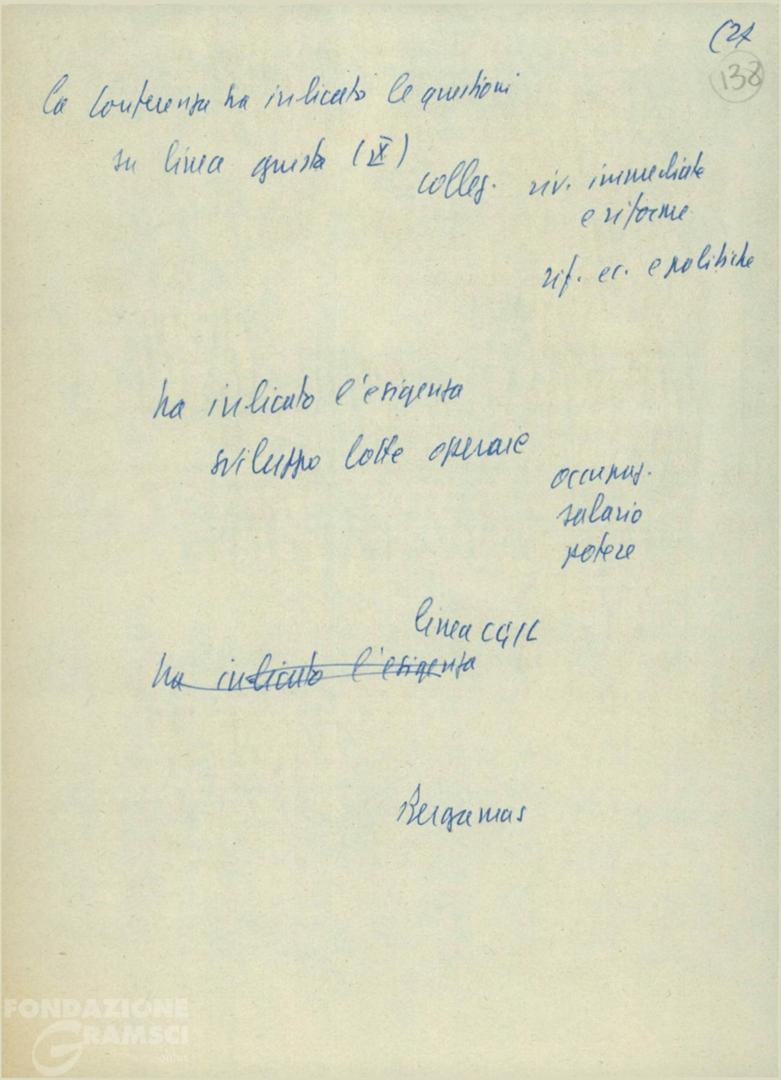 (2)
138
La Conferenza ha indicato le questioni
su linea giusta (IX)
colleg. riv. immediate
e riforme
rif. ec. e politiche
ha indicato l'esigenza
sviluppo lotte operaie
occupaz.
salario
potere
linea CGIL
ha indicato l'esigenza
Bergamas
FONDAZIONE
GRAMSCI